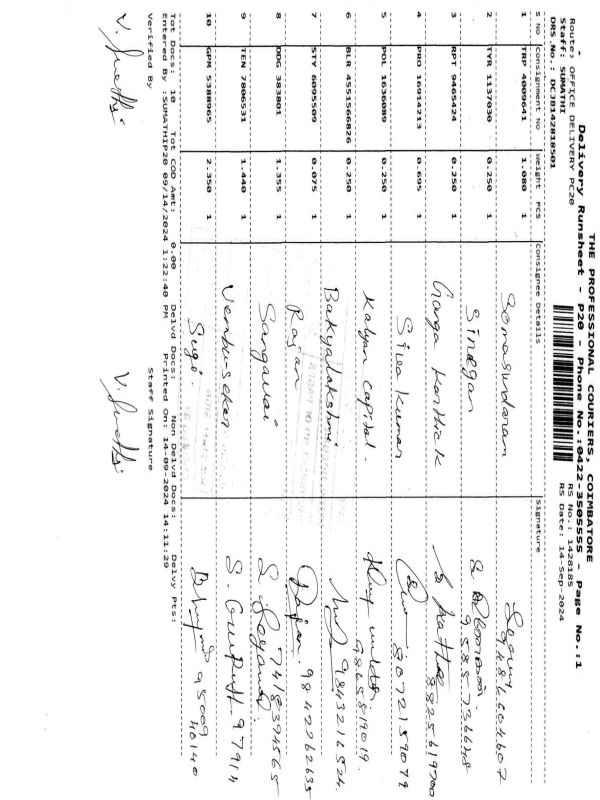 THE PROFESSIONAL COURIERS, COIMBATORE
Delivery Runsheet - P20 - Phone No.:0422-3505555 - Page No.:1
Route: OFFICE DELIVERY PC20 RS No.: 1428185
Staff: SUMATHI RS Date: 14-Sep-2024
DRS.No.: DCJB142818501
S No Consignment No Weight PCS Consignee Details Signature
1 TRP 4009641 1.080 1 Somasundaram 9486604607
2 TYR 1137030 0.250 1 Sinegan 9585736648
3 RPT 9465424 0.250 1 Ganga Karthick 8825619700
4 PRO 16914213 0.695 1 Siva kumar 8072159079
5 POL 1636089 0.250 1 Kalyan capital. 9865819019.
6 BLR 4551566826 0.250 1 Bakyalakshmi 9843216524.
7 STY 6095509 0.075 1 Rajan Rajan. 9842262635
8 DDG 383801 1.355 1 Sangavai 7418394565
9 TEN 7806531 1.440 1 Venbu-seker 97914
10 GPM 5388965 2.350 1 Sugi. 95009
40140
Tot Docs: 10 Tot COD Amt: 0.00 Delvd Docs: Non Delvd Docs: Delvy Pts:
Entered By :SUMATHIP20 09/14/2024 1:22:40 PM Printed On: 14-09-2024 14:11:29
Verified By Staff Signature